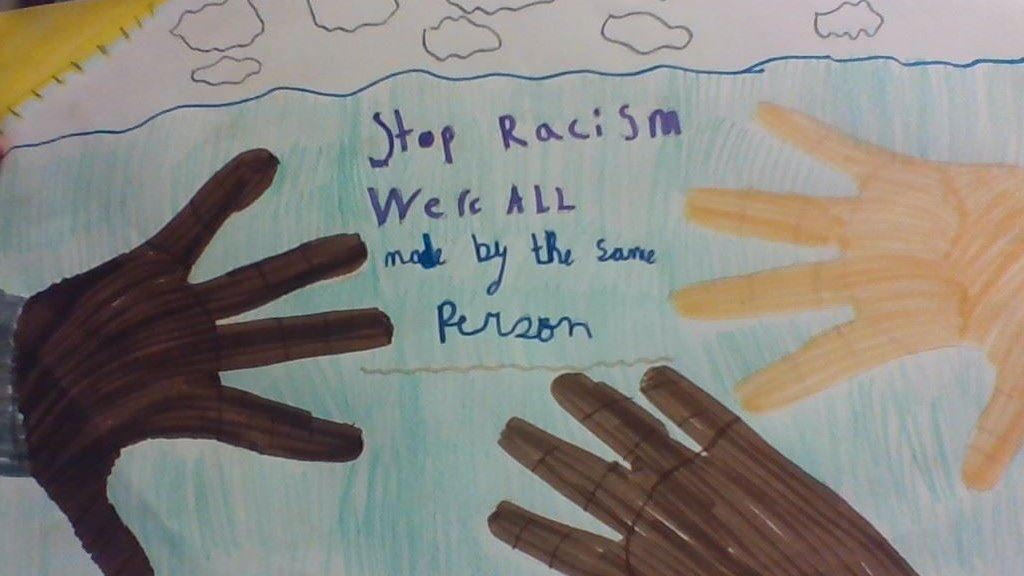 Stop Racism
We're ALL
made by the same
Person